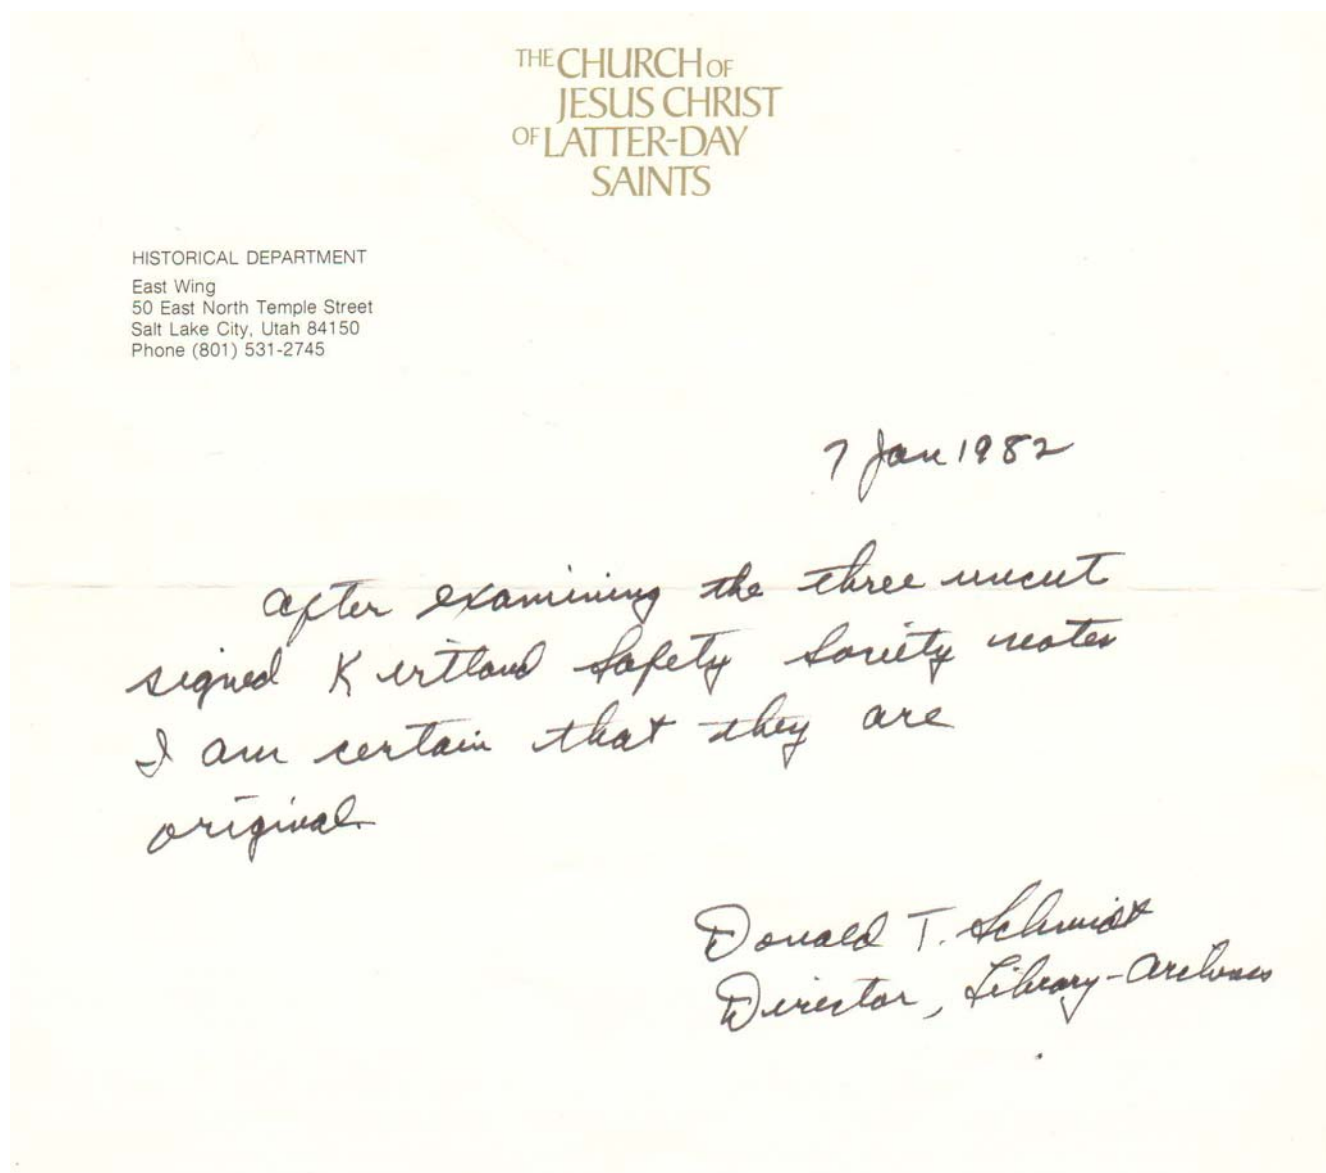 THE CHURCH OF
JESUS CHRIST
OF LATTER-DAY
SAINTS
HISTORICAL DEPARTMENT
East Wing
50 East North Temple Street
Salt Lake City, Utah 84150
Phone (801) 531-2745
7 Jan 1982
After examining the three uncut
signed Kirtland Safety Society notes
I am certain that they are
original.
Donald T. Schmidt
Director, Library-Archives